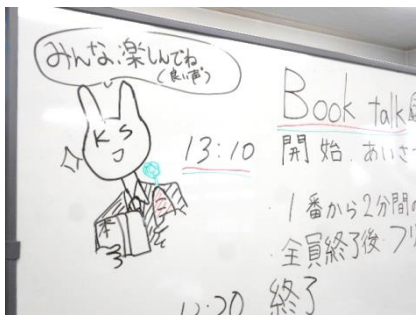 みんな、楽しんでね
(良い声)
KS
本
Book talk
13:10 開始、あいさ
・1番から2分間の
・全員終了後フリ
終了